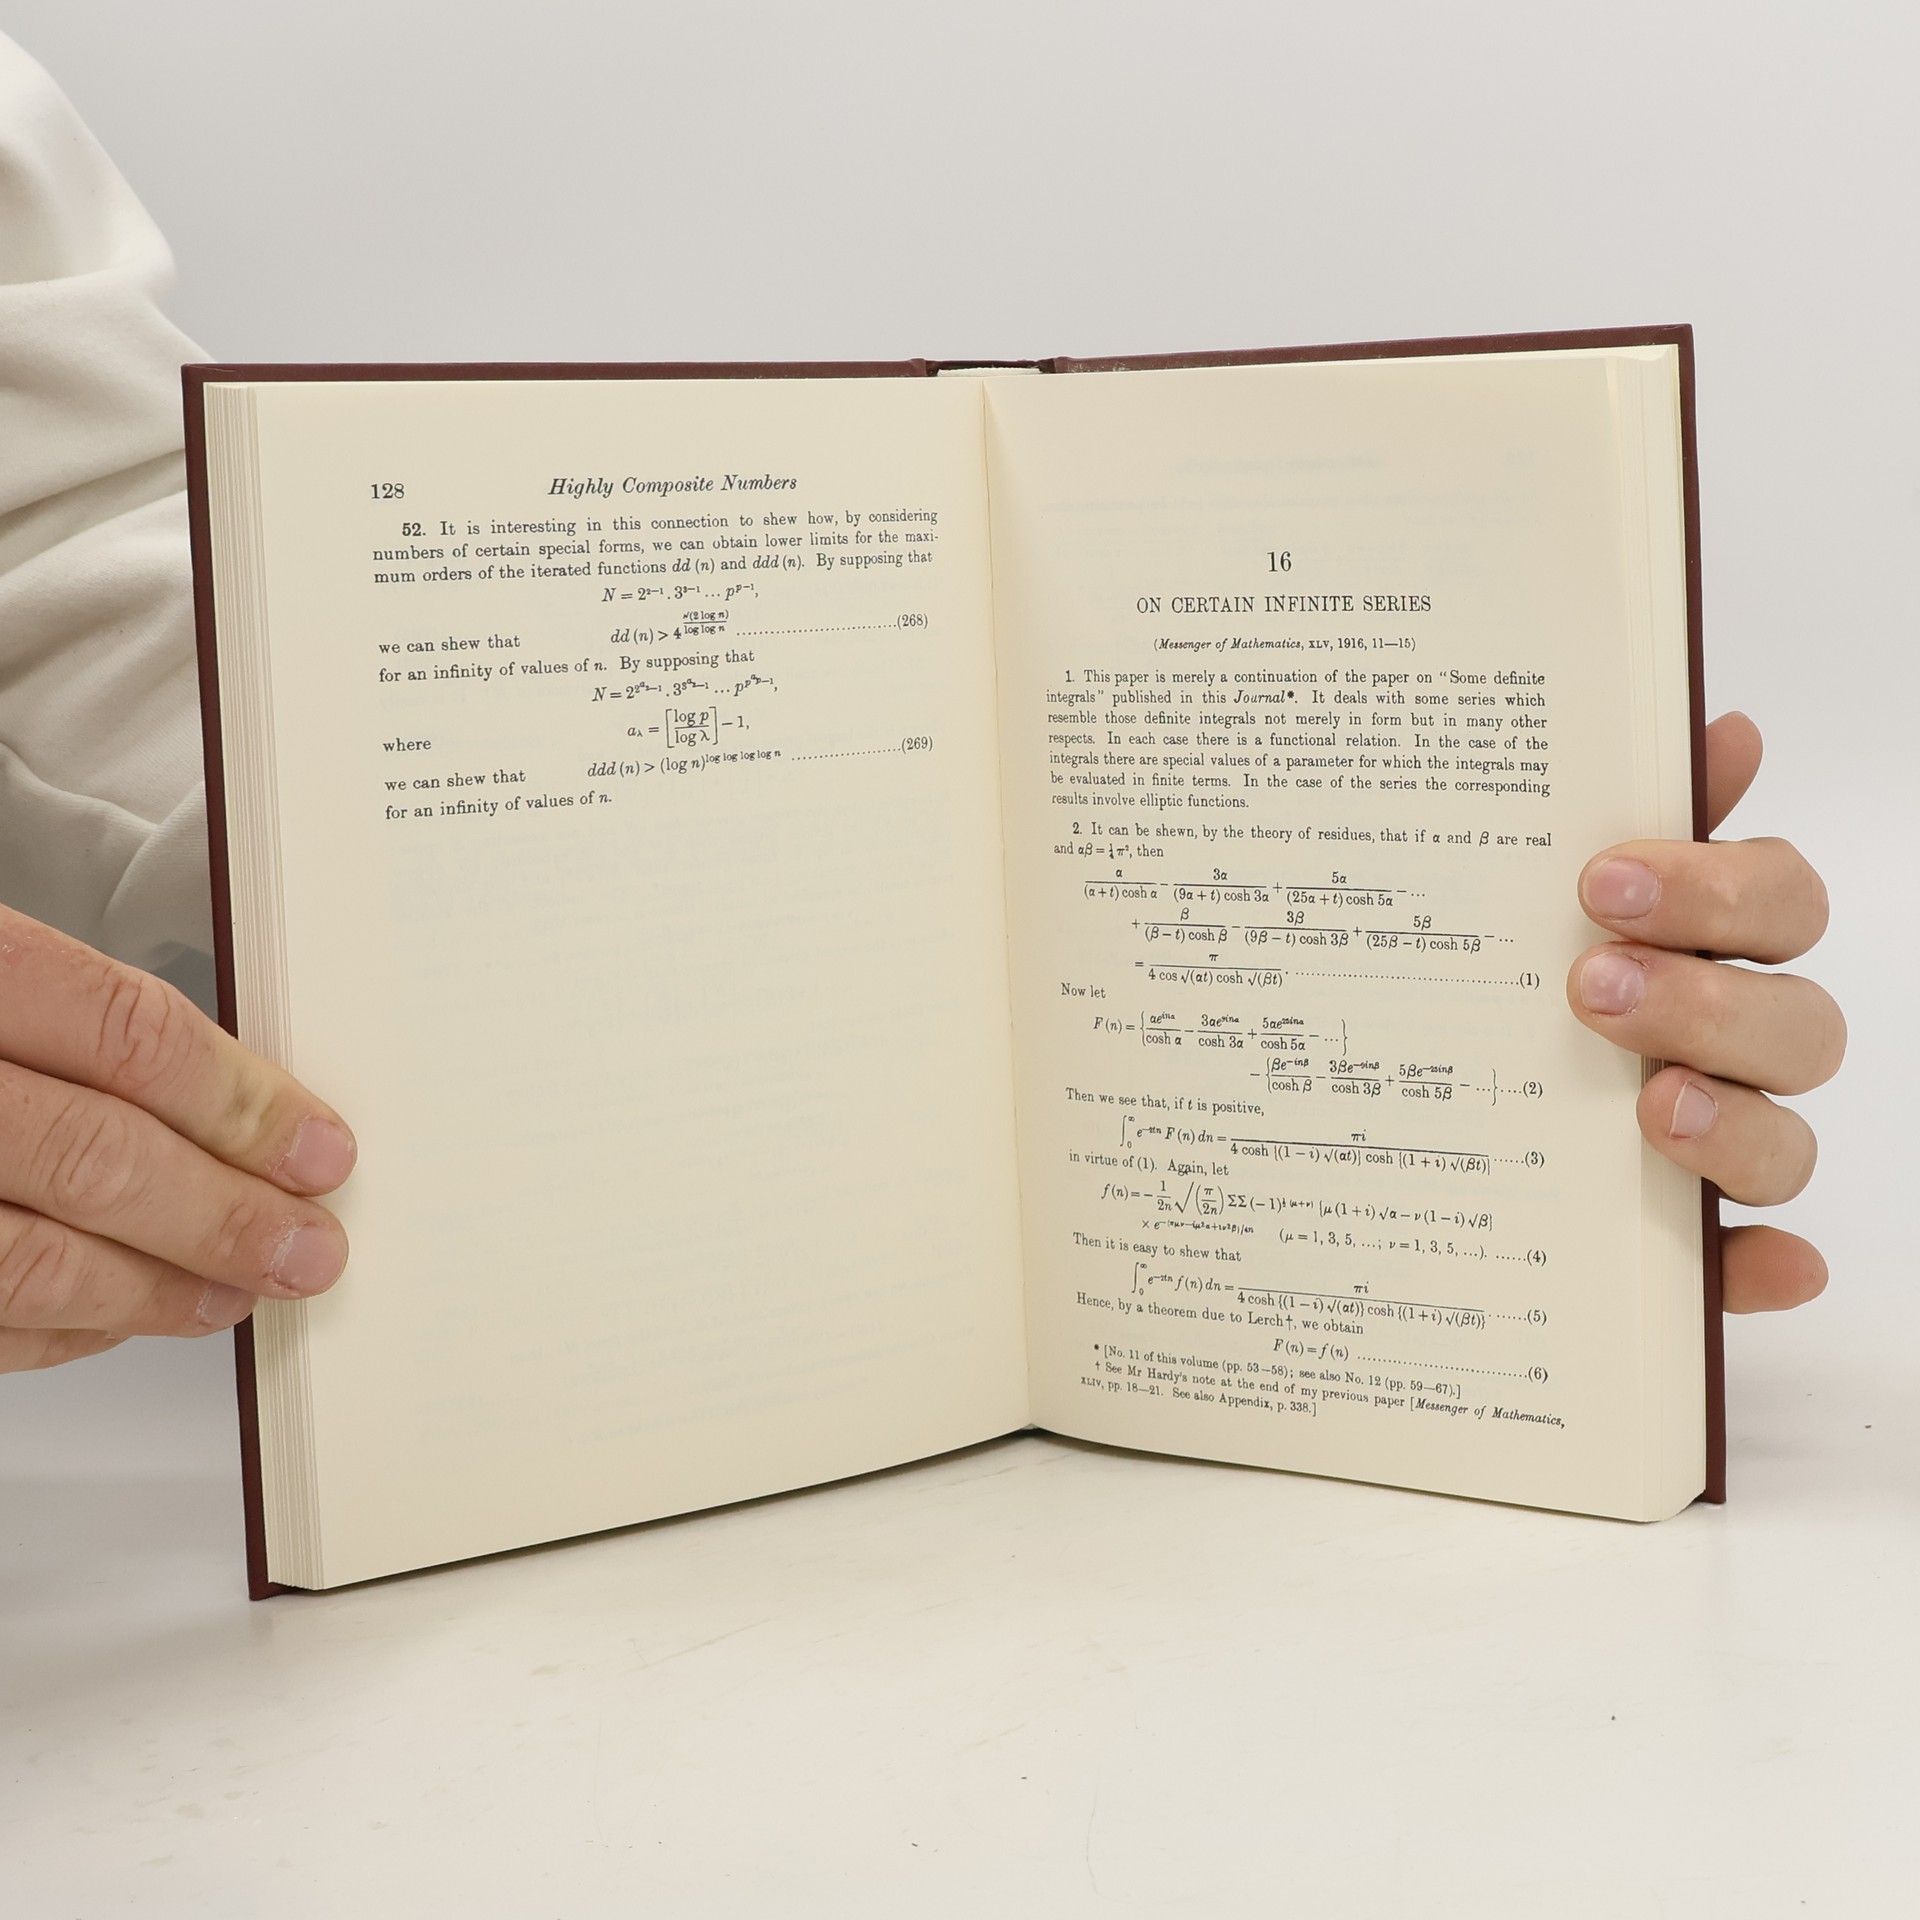 128 Highly Composite Numbers
52. It is interesting in this connection to shew how, by considering
numbers of certain special forms, we can obtain lower limits for the maxi-
mum orders of the iterated functions dd (n) and ddd (n). By supposing that
N = 2^{2−1} . 3^{3−1} ... p^{p−1},
we can shew that dd (n) > 4^{√(2 log n)/log log n} ..............................(268)
for an infinity of values of n. By supposing that
N = 2^{2^{a_2}−1} . 3^{3^{a_3}−1} ... p^{p^{a_p}−1},
where a_λ = [log p/log λ] − 1,
we can shew that ddd (n) > (log n)^{log log log log n} ..................(269)
for an infinity of values of n.
16
ON CERTAIN INFINITE SERIES
(Messenger of Mathematics, XLV, 1916, 11—15)
1. This paper is merely a continuation of the paper on “Some definite
integrals” published in this Journal*. It deals with some series which
resemble those definite integrals not merely in form but in many other
respects. In each case there is a functional relation. In the case of the
integrals there are special values of a parameter for which the integrals may
be evaluated in finite terms. In the case of the series the corresponding
results involve elliptic functions.
2. It can be shewn, by the theory of residues, that if α and β are real
and αβ = ¼π², then
α/((α + t) cosh α) − 3α/((9α + t) cosh 3α) + 5α/((25α + t) cosh 5α) − ...
+ β/((β − t) cosh β) − 3β/((9β − t) cosh 3β) + 5β/((25β − t) cosh 5β) − ...
= π/(4 cos √(αt) cosh √(βt)). ..............................(1)
Now let
F(n) = {αe^{inα}/cosh α − 3αe^{9inα}/cosh 3α + 5αe^{25inα}/cosh 5α − ...}
− {βe^{−inβ}/cosh β − 3βe^{−9inβ}/cosh 3β + 5βe^{−25inβ}/cosh 5β − ...}. ...(2)
Then we see that, if t is positive,
∫_0^∞ e^{−2tn} F(n) dn = πi/(4 cosh {(1 − i) √(αt)} cosh {(1 + i) √(βt)}) ......(3)
in virtue of (1). Again, let
f(n) = − 1/2n √(π/2n) ΣΣ (−1)^{½(μ+ν)} {μ(1 + i) √α − ν(1 − i) √β}
× e^{−(πμν−iμ²α+iν²β)/4n} (μ = 1, 3, 5, ...; ν = 1, 3, 5, ...). ......(4)
Then it is easy to shew that
∫_0^∞ e^{−2tn} f(n) dn = πi/(4 cosh {(1 − i) √(αt)} cosh {(1 + i) √(βt)}). ......(5)
Hence, by a theorem due to Lerch†, we obtain
F(n) = f(n) ..............................(6)
* [No. 11 of this volume (pp. 53—58); see also No. 12 (pp. 59—67).]
† See Mr Hardy's note at the end of my previous paper [Messenger of Mathematics,
XLIV, pp. 18—21. See also Appendix, p. 338.]